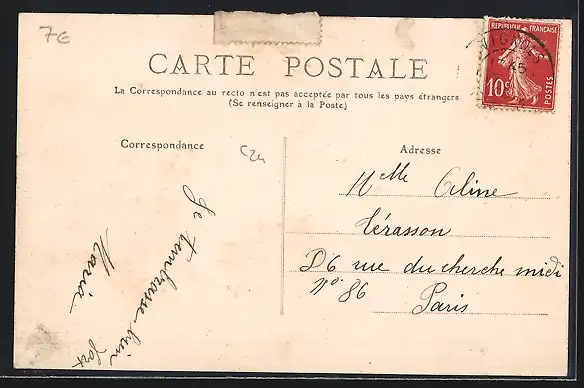 7€
CARTE POSTALE
La Correspondance au recto n'est pas acceptée par tous les pays étrangers
(Se renseigner à la Poste)
REPUBLIQUE FRANÇAISE
10c
POSTES
Correspondance
Je t'embrasse bien fort
Maria
Adresse
Melle Aline
Térasson
26 rue du cherche midi
no 86
Paris